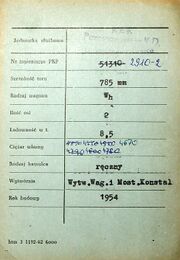 Jednostka służbowa
Nr inwentarza PKP 51310 2910-2
Szerokość toru 785 mm
Rodzaj wagonu Wh
Ilość osi 2
Ładowność w t 8,5
Ciężar własny 4670
Rodzaj hamulca ręczny
Wytwórnia Wytw.Wag.i Most.Konstal
Rok budowy 1954